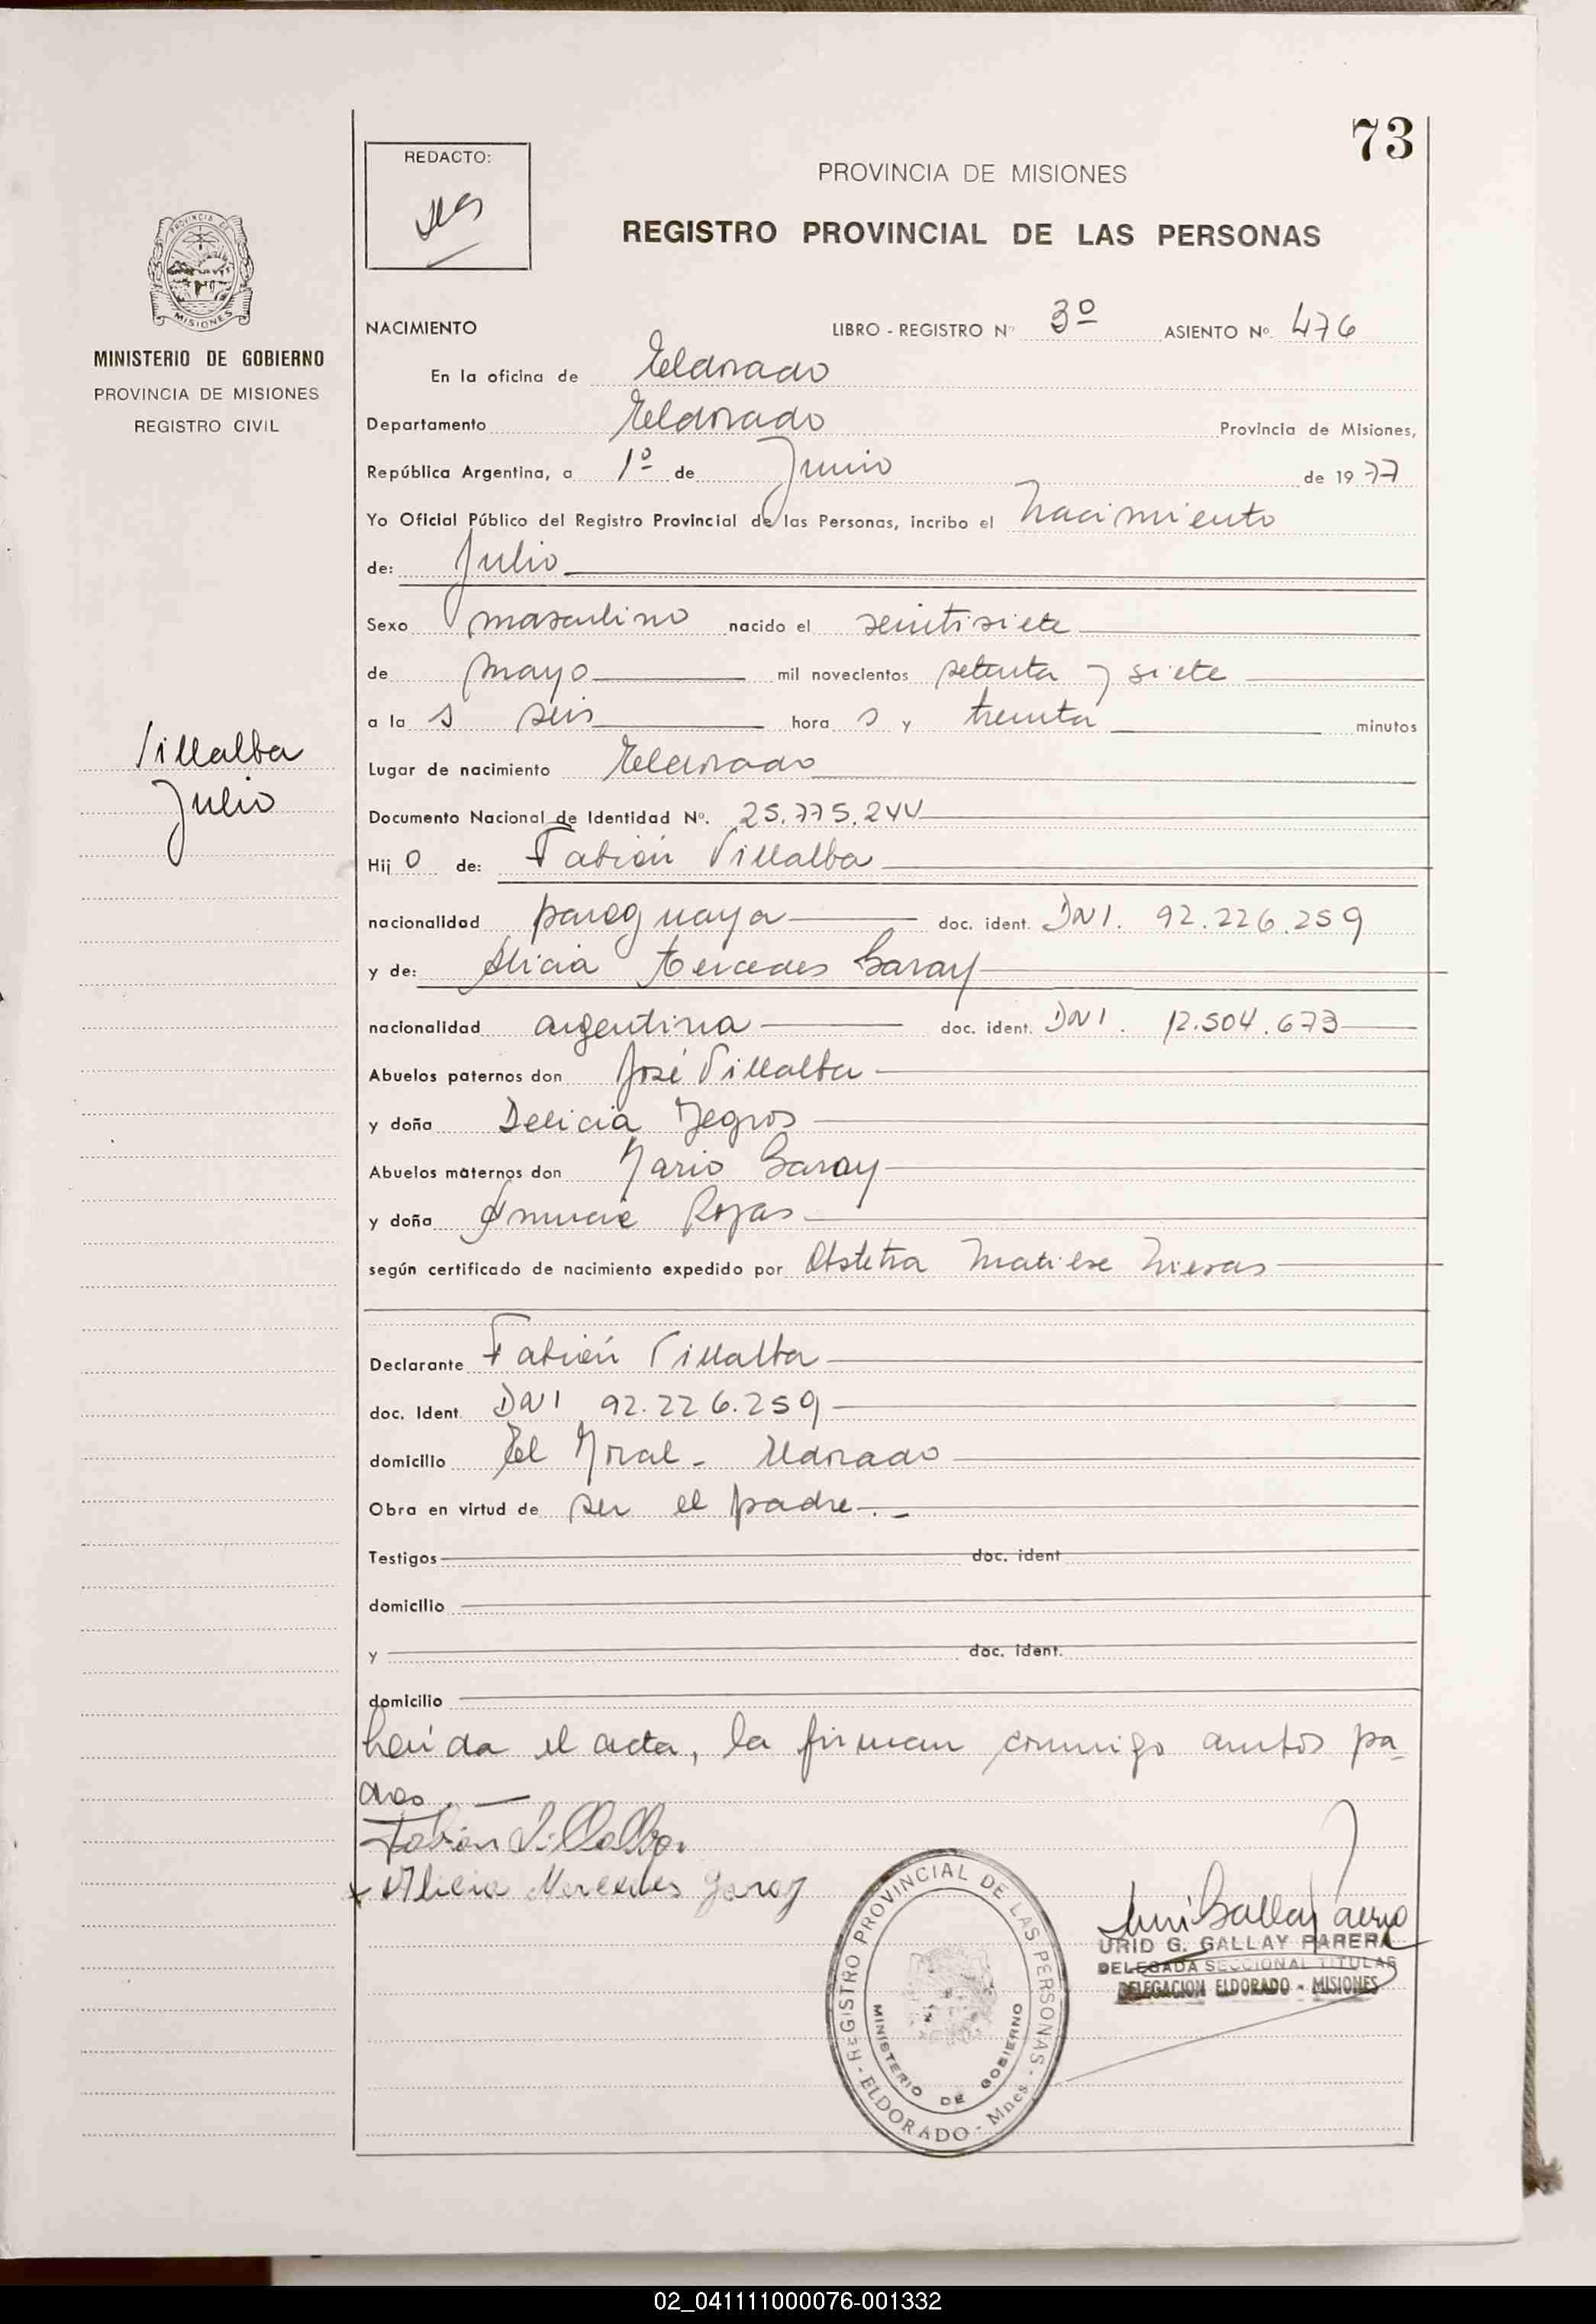 73
REDACTO:
PROVINCIA DE MISIONES
REGISTRO PROVINCIAL DE LAS PERSONAS
PROVINCIA DE
MISIONES
MINISTERIO DE GOBIERNO
PROVINCIA DE MISIONES
REGISTRO CIVIL
NACIMIENTO LIBRO - REGISTRO Nº 3º ASIENTO Nº. 476
En la oficina de Eldorado
Departamento Eldorado Provincia de Misiones,
República Argentina, a 1º de Junio de 1977
Yo Oficial Público del Registro Provincial de las Personas, incribo el Nacimiento
de: Julio
Sexo masculino nacido el veintisiete
de mayo mil novecientos setenta y siete
a la s seis hora s y treinta minutos
Villalba
Julio
Lugar de nacimiento Eldorado
Documento Nacional de Identidad Nº. 25.775.244
Hij o de: Fabián Villalba
nacionalidad paraguaya doc. ident. DNI. 92.226.259
y de: Alicia Mercedes Garay
nacionalidad argentina doc. ident. DNI. 12.504.673
Abuelos paternos don José Villalba
y doña Delicia Negros
Abuelos maternos don Mario Garay
y doña Rojas
según certificado de nacimiento expedido por Obstetra Matilse Nievas
Declarante Fabián Villalba
doc. Ident. DNI 92.226.259
domicilio El Moral - Eldorado
Obra en virtud de ser el padre.-
Testigos doc. ident
domicilio
y doc. ident.
domicilio
Leída el acta, la firman conmigo ambos pa-
dres. -
Fabian Villalba
x Alicia Mercedes Garay
REGISTRO PROVINCIAL DE LAS PERSONAS - ELDORADO - Mnes. -
MINISTERIO DE GOBIERNO
URID G. GALLAY PARERA
DELEGADA SECCIONAL TITULAR
DELEGACION ELDORADO - MISIONES
02_041111000076-001332